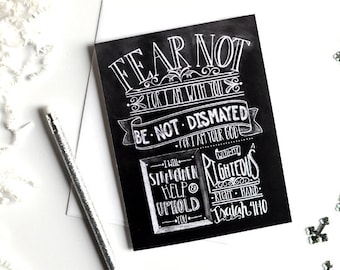 FEAR NOT
FOR I AM WITH YOU
BE NOT DISMAYED
FOR I AM YOUR GOD
I WILL
STRENGTHEN
HELP &
UPHOLD
YOU
WITH MY
RIGHTEOUS
RIGHT HAND
Isaiah 41:10